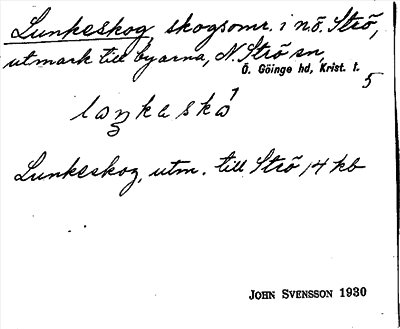 Lunkeskog, skogsomr. i n.ö. Strö,
utmark till byarna, N. Strö sn,
Ö. Göinge hd, Krist. l.
5
Lunkeskog, utm. till Strö 14 kb
JOHN SVENSSON 1930